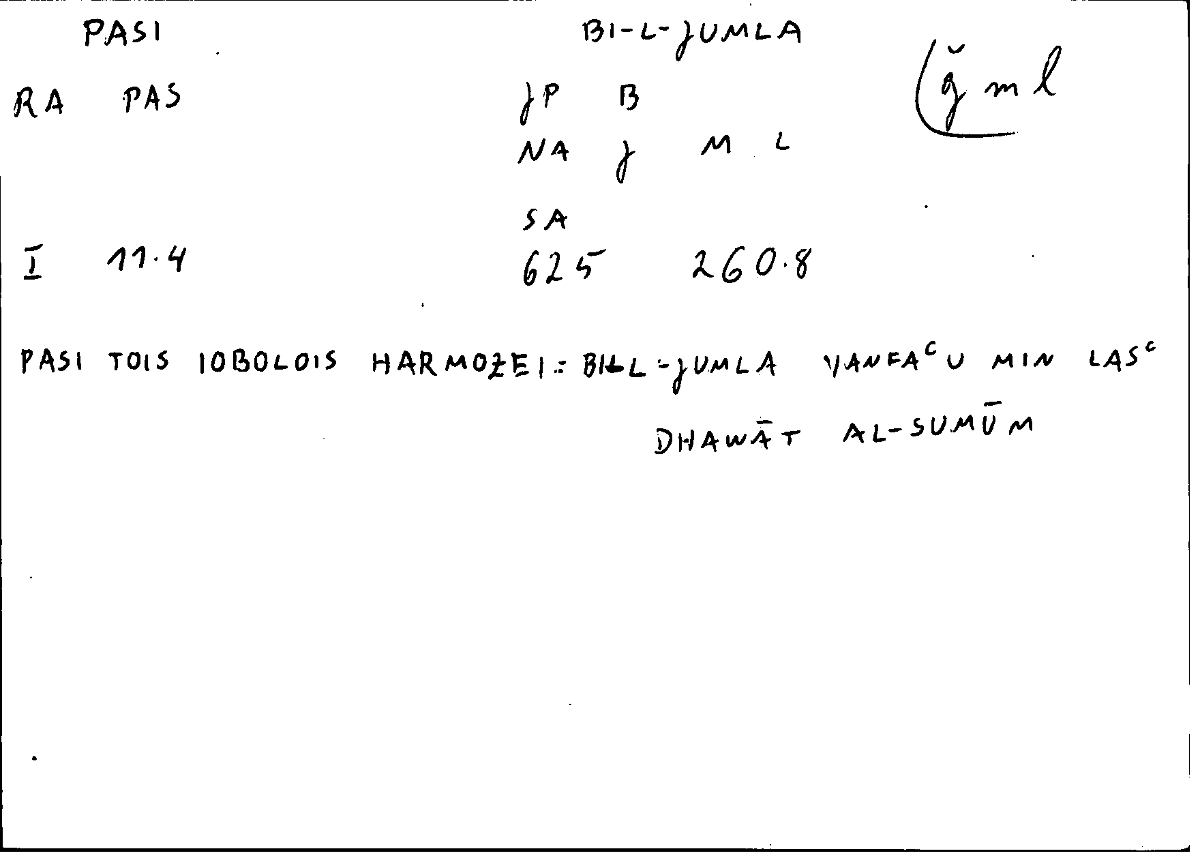 PASI BI-L-JUMLA
RA PAS JP B ǧ m l
NA J M L
SA
I 11.4 625 260.8
PASI TOIS IOBOLOIS HARMOZEI = BI-L-JUMLA YANFAᶜU MIN LASᶜ
DHAWĀT AL-SUMŪM